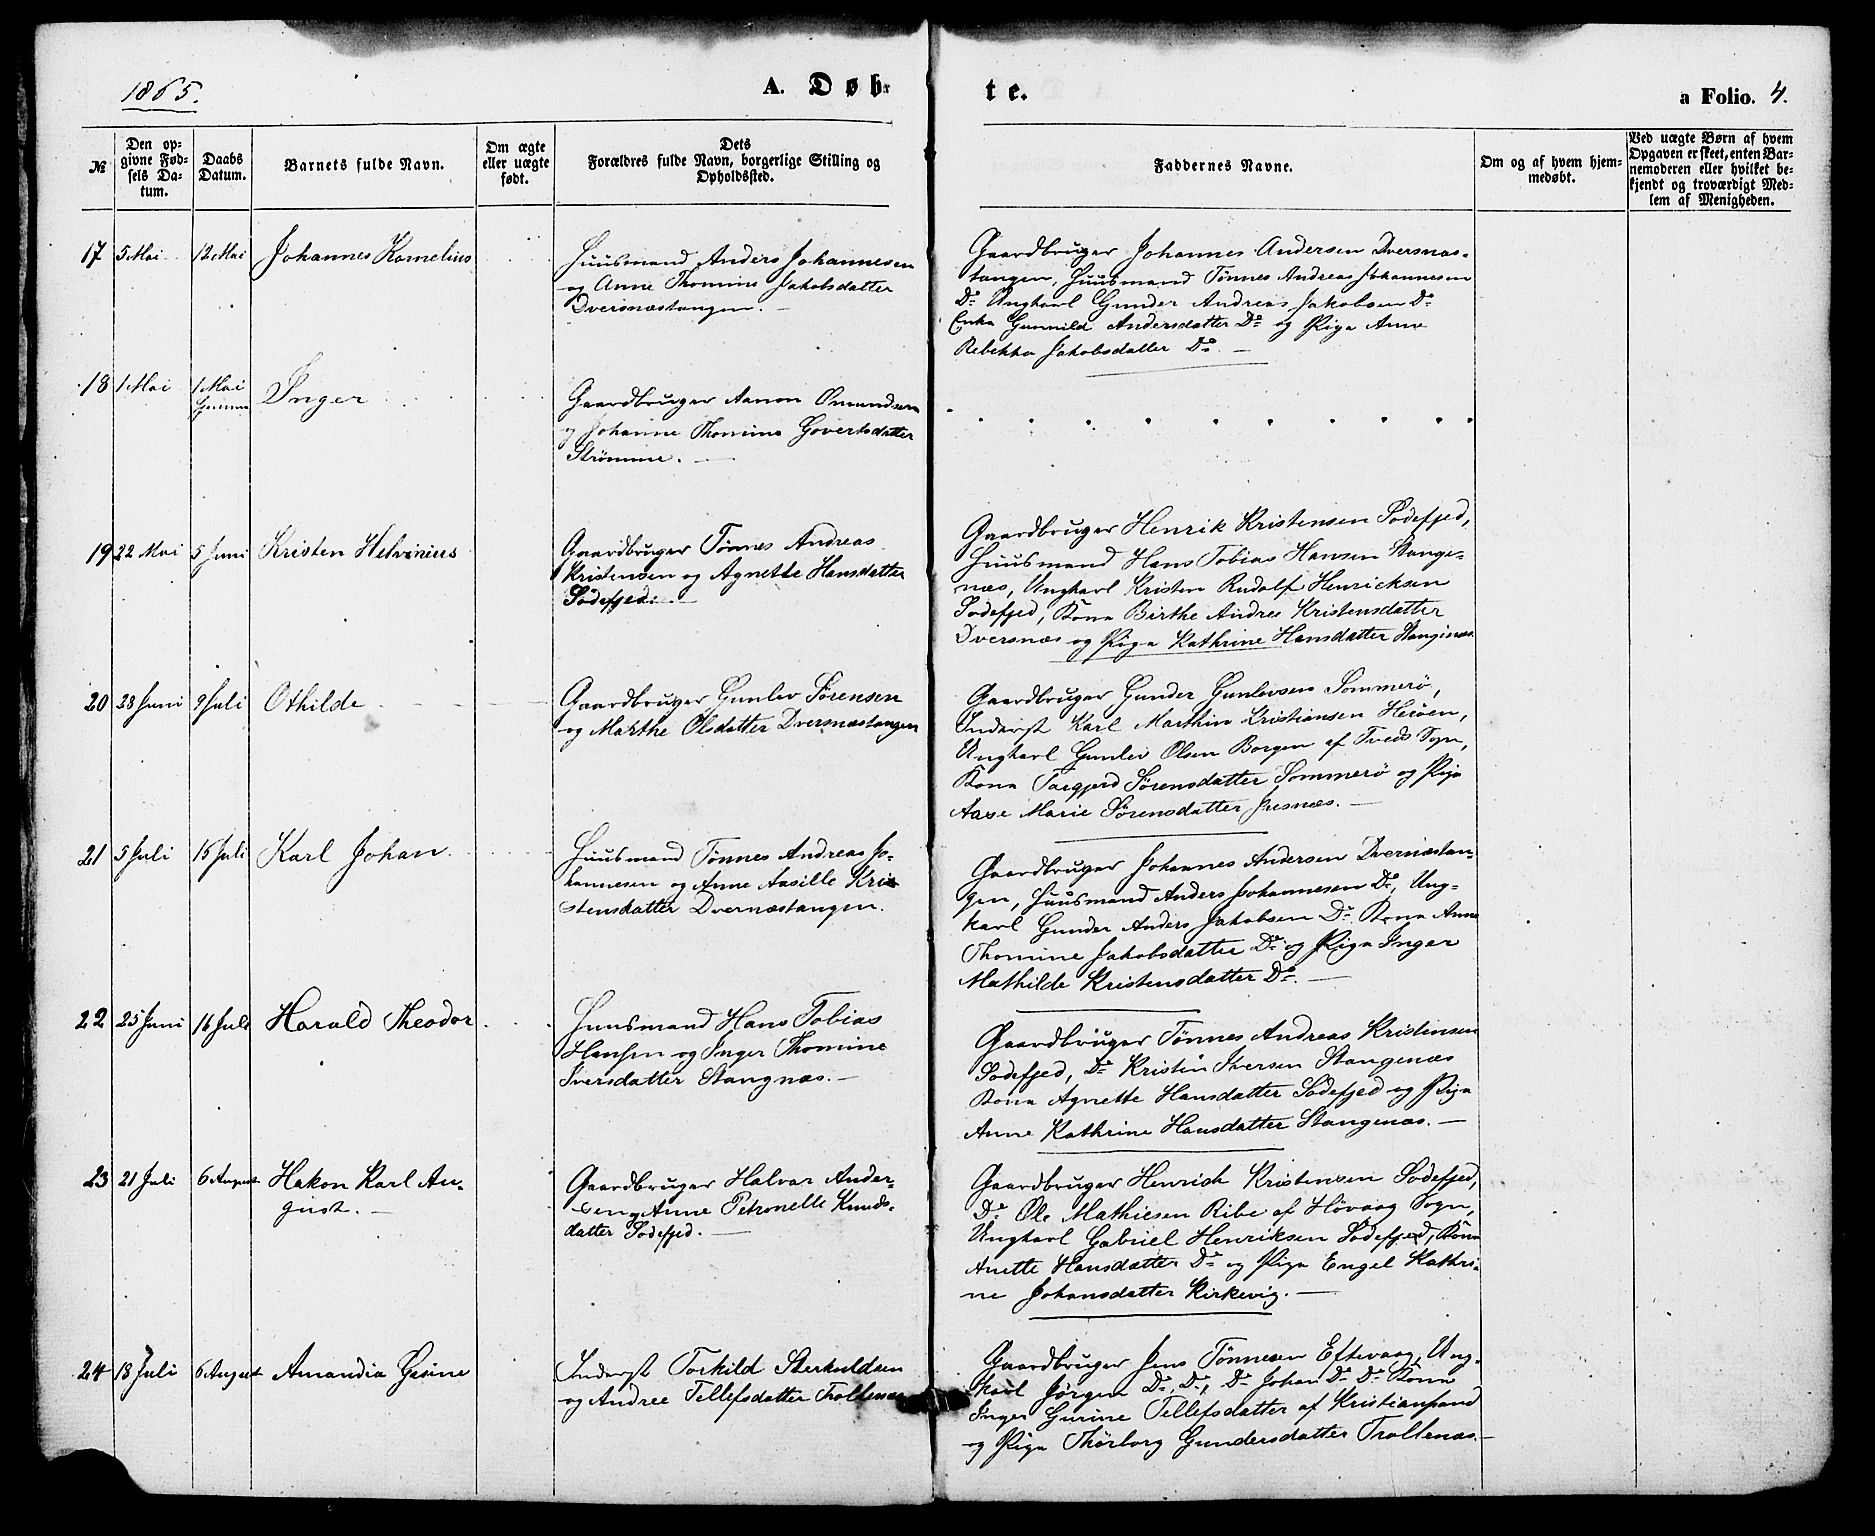 1865.
A. Døbte.
a Folio. 4.
№
Den opgivne Fødsels Datum.
Daabs Datum.
Barnets fulde Navn.
Om ægte eller uægte født.
Dets Forældres fulde Navn, borgerlige Stilling og Opholdssted.
Faddernes Navne.
Om og af hvem hjemmedøbt.
Ved uægte Børn af hvem Opgaven er skeet, enten Barnemoderen eller hvilket bekjendt og troværdigt Medlem af Menigheden.
17 5 Mai 12 Mai Johannes Kornelius
Huusmand Anders Johannesen
og Anne Thomine Jakobsdatter
Dversnæstangen.
Gaardbruger Johannes Andersen Dversnæs-
tangen, Huusmand Tønnes Andreas Johannesen
Do Ungkarl Gunder Andreas Jakobsen Do
Enke Gunnild Andersdatter Do og Pige Anne
Rebekka Jakobsdatter Do.
18 1 Mai 1 Mai Inger
Gaardbruger Aanon Omundsen
og Johanne Thomine Govertsdatter
Strømme.
19 22 Mai 5 Juni Kristen Helvinius
Gaardbruger Tønnes Andreas
Kristensen og Agnette Hansdatter
Sodefjed.
Gaardbruger Henrik Kristensen Sodefjed,
Huusmand Hans Tobias Hansen Stange-
næs, Ungkarl Kristen Rudolf Henricksen
Sodefjed, Kone Birthe Andrea Kristensdatter
Dversnæs og Pige Kathrine Hansdatter Stangenæs
20 28 Juni 9 Juli Othilde
Gaardbruger Gunlev Sørensen
og Marthe Olsdatter Dversnæstangen
Gaardbruger Gunder Gunlevsen Sommerø,
Inderst Karl Marthin Kristiansen Herøen,
Ungkarl Gunlev Olsen Borgen af Tveds Sogn,
Kone Targjerd Sørensdatter Sommerø og Pige
Aase Marie Sørensdatter
21 5 Juli 15 Juli Karl Johan
Huusmand Tønnes Andreas Jo-
hannesen og Anne Aasille Kri
stensdatter Dvernæstangen.
Gaardbruger Johannes Andersen Dvernæstan-
gen, Huusmand Anders Johannesen Do, Ung-
karl Gunder Anders Jakobsen Do Kone Anne
Thomine Jakobsdatter Do og Pige Inger
Mathilde Kristensdatter Do.
22 25 Juni 16 Juli Harald Theodor
Huusmand Hans Tobias
Hansen og Inger Thomine
Iversdatter Stangnæs.
Gaardbruger Tønnes Andreas Kristensen
Sodefjed, Do Kristen Iversen Stangenæs
Kone Agnette Hansdatter Sodefjed og Pige
Anne Kathrine Hansdatter Stangenæs.
23 21 Juli 6 August Hakon Karl Au-
gust.
Gaardbruger Halvar Ander-
sen og Anne Petronelle Knuds-
datter Sodefjed.
Gaardbruger Henrich Kristensen Sodefjed,
Do Ole Mathiesen Ribe af Høvaag Sogn,
Ungkarl Gabriel Henriksen Sodefjed, Kone
Anette Hansdatter Do og Pige Engel Kathri-
ne Johansdatter Kirkevig.
24 13 Juli 6 August Amandia Gesine
Inderst Torkild Sterkuldsen
og Andrea Tellefsdatter Trollenæs
Gaardbruger Jens Tønnesen Eftevaag, Ung-
karl Jørgen Do, Do, Do Johan Do Do Kone
Inger Gurine Tellefsdatter af Kristiansand
og Pige Thorborg Gundersdatter Trollenæs.